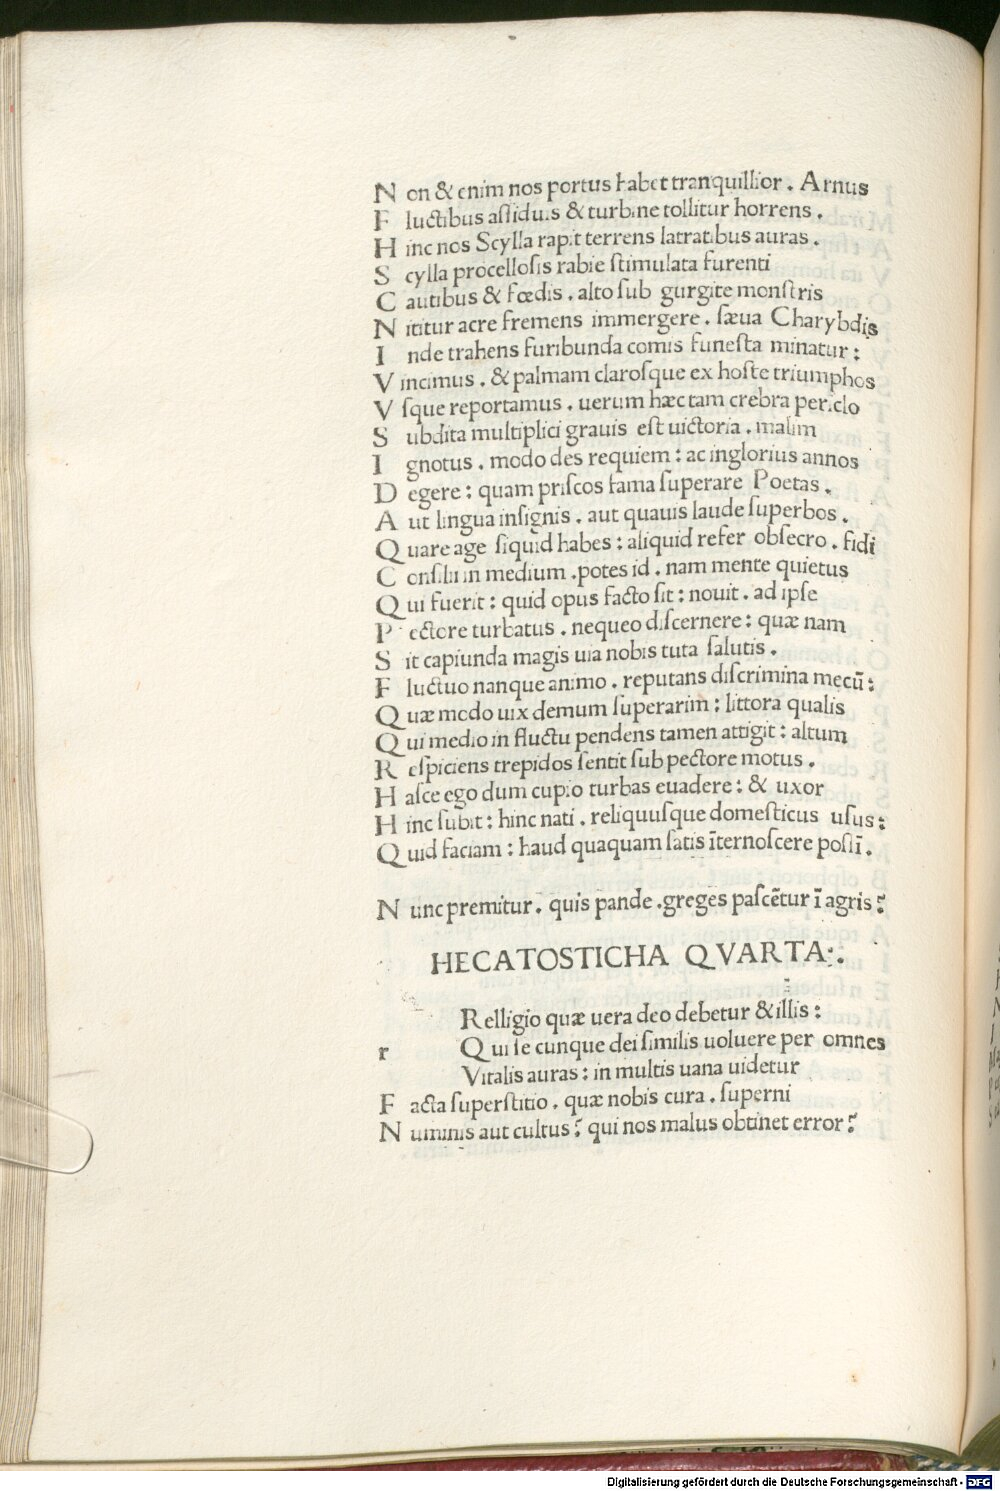 N on & enim nos portus habet tranquillior . Arnus
F luctibus aſſiduis & turbine tollitur horrens .
H inc nos Scylla rapit terrens latratibus auras .
S cylla procelloſis rabie ſtimulata furenti
C autibus & fœdis . alto ſub gurgite monſtris
N ititur acre fremens immergere . ſæua Charybdis
I nde trahens furibunda comis funeſta minatur :
V incimus . & palmam claroſque ex hoſte triumphos
V ſque reportamus . uerum hæc tam crebra periclo
S ubdita multiplici grauis eſt uictoria . malim
I gnotus . modo des requiem : ac inglorius annos
D egere : quam priſcos fama ſuperare Poetas .
A ut lingua inſignis . aut quauis laude ſuperbos .
Q uare age ſiquid habes : aliquid refer obſecro . fidi
C onſilii in medium . potes id . nam mente quietus
Q ui fuerit : quid opus facto ſit : nouit . ad ipſe
P ectore turbatus . nequeo diſcernere : quæ nam
S it capiunda magis uia nobis tuta ſalutis .
F luctuo nanque animo . reputans diſcrimina mecū :
Q uæ modo uix demum ſuperarim : littora qualis
Q ui medio in fluctu pendens tamen attigit : altum
R eſpiciens trepidos ſentit ſub pectore motus .
H aſce ego dum cupio turbas euadere : & uxor
H inc ſubit : hinc nati . reliquuſque domeſticus uſus :
Q uid faciam : haud quaquam ſatis īternoſcere poſſī .
N unc premitur . quis pande . greges paſcētur ī agris ?
HECATOSTICHA QVARTA :.
Relligio quæ uera deo debetur & illis :
r Q ui ſe cunque dei ſimilis uoluere per omnes
Vitalis auras : in multis uana uidetur
F acta ſuperſtitio . quæ nobis cura . ſuperni
N uminis aut cultus ? qui nos malus obtinet error ?
Digitalisierung gefördert durch die Deutsche Forschungsgemeinschaft - DFG